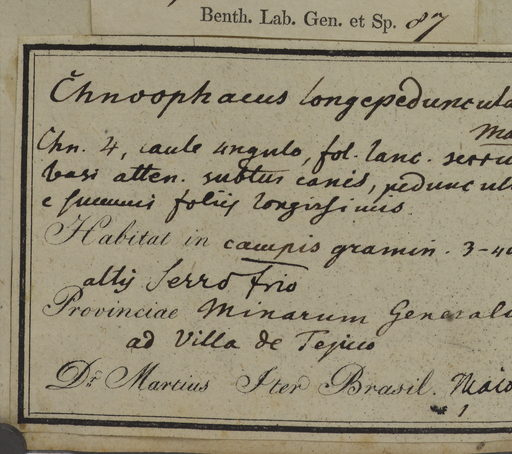 Benth. Lab. Gen. et Sp. 87
longepeduncula
Ma
Chn. 4, caule angulo, fol. lanc. serru
basi atten. subtus canis, peduncul
e summis foliis longissimis
Habitat in campis gramin. 3-40
altis Serro frio
Provinciae Minarum General
ad Villa de Tejuco
Dr. Martius Iter Brasil. Maio
1